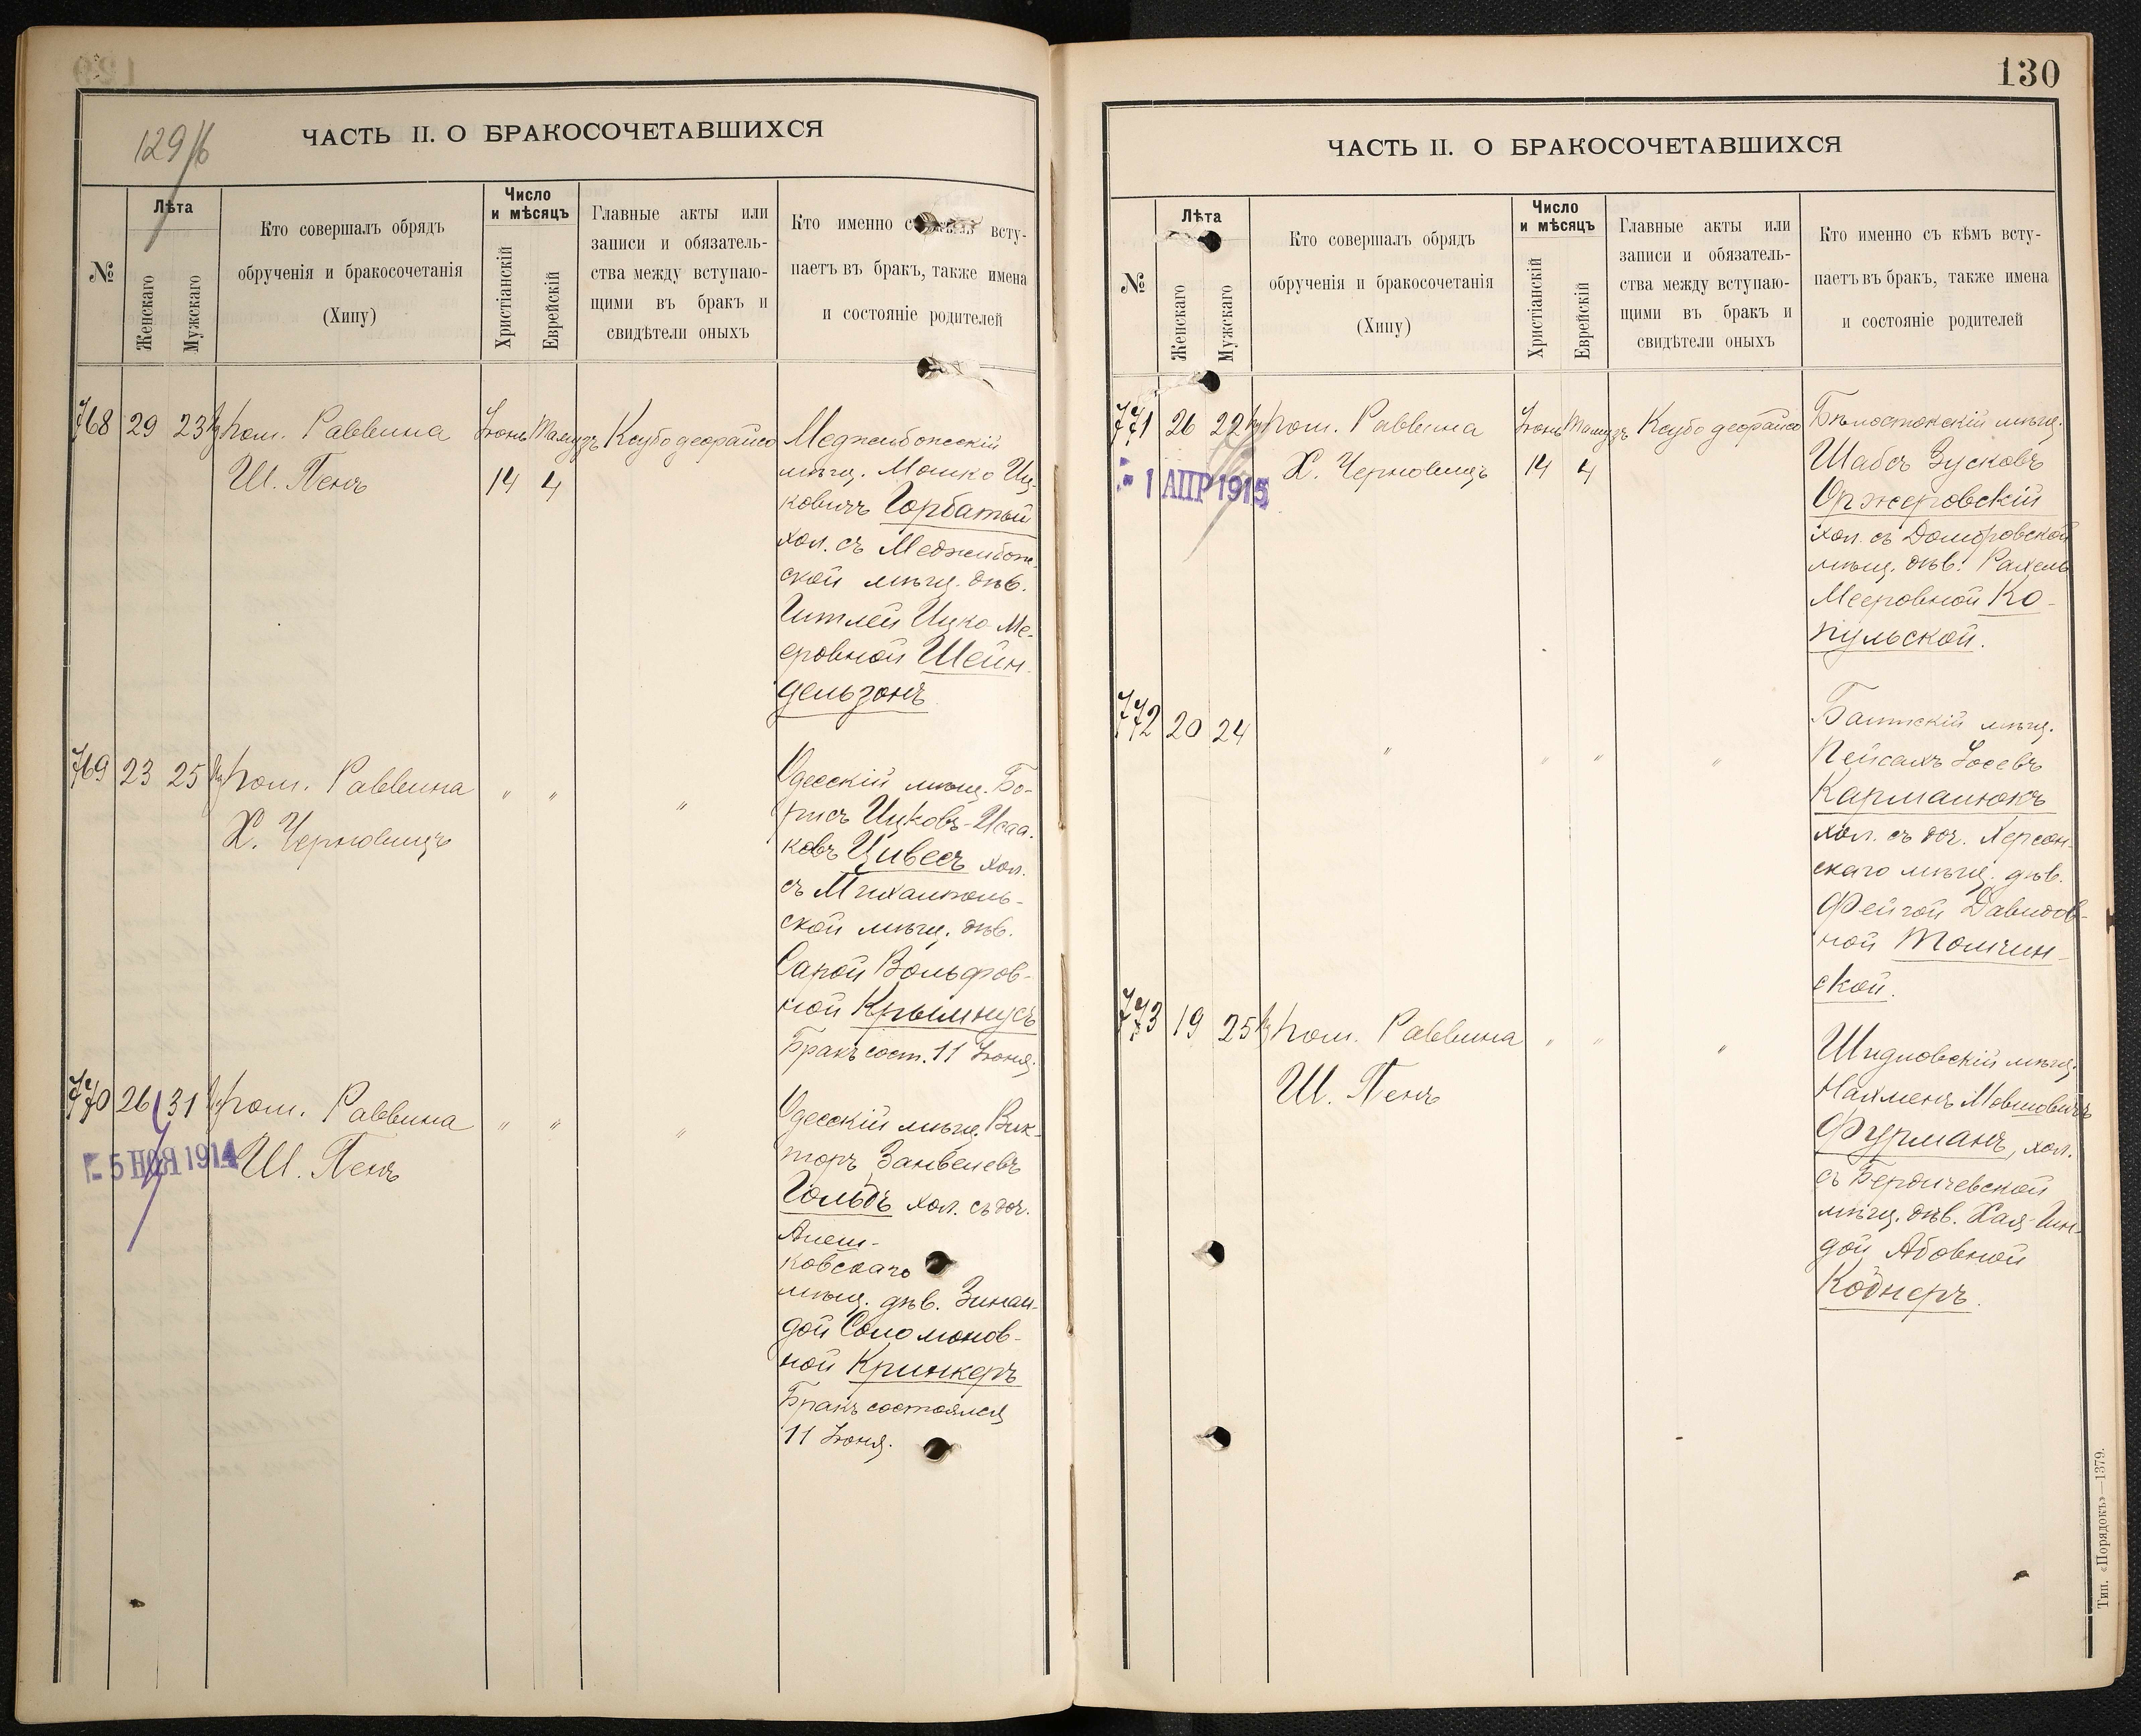 129/б
ЧАСТЬ II. О БРАКОСОЧЕТАВШИХСЯ
№
Лѣта
Женскаго
Мужскаго
Кто совершалъ обрядъ
обрученія и бракосочетанія
(Хипу)
Число
и мѣсяцъ
Христіанскій
Еврейскій
Главные акты или
записи и обязатель-
ства между вступаю-
щими въ бракъ и
свидѣтели оныхъ
Кто именно съ кѣмъ всту-
паетъ въ бракъ, также имена
и состояніе родителей
768 29 23 пом. Раввина Іюнь Тамузъ Ксубо деорайсо
Ш. Пенъ 14 4
Меджибожскій
мѣщ. Мошко Иц-
ковичъ Горбатый
хол. съ Меджибож-
ской мѣщ. дѣв.
Гитлей Ицко Ме-
еровной Шейн-
дельзонъ
769 23 25 пом. Раввина " " "
Х. Черновицъ
Одесскій мѣщ. Бо-
рисъ Ицковъ-Исаа-
ковъ Цивесъ хол.
съ Михалполь-
ской мѣщ. дѣв.
Сарой Вольфов-
ной Крымнусъ
Бракъ сост. 11 Іюня.
770 26 31 пом. Раввина " " "
Ш. Пенъ
- 5 НОЯ 1914
Одесскій мѣщ. Вик-
торъ Занвелевъ
Гольдъ хол. съ доч.
Алеш-
ковскаго
мѣщ. дѣв. Зинаи-
дой Соломонов-
ной Кринкеръ
Бракъ состоялся
11 Іюня.
130
ЧАСТЬ II. О БРАКОСОЧЕТАВШИХСЯ
№
Лѣта
Женскаго
Мужскаго
Кто совершалъ обрядъ
обрученія и бракосочетанія
(Хипу)
Число
и мѣсяцъ
Христіанскій
Еврейскій
Главные акты или
записи и обязатель-
ства между вступаю-
щими въ бракъ и
свидѣтели оныхъ
Кто именно съ кѣмъ всту-
паетъ въ бракъ, также имена
и состояніе родителей
771 26 22 пом. Раввина Іюнь Тамузъ Ксубо деорайсо
Х. Черновицъ 14 4
- 1 АПР 1915
Бѣлостокскій мѣщ.
Шабсъ Зусковъ
Оржеровскій
хол. съ Домбровской
мѣщ. дѣв. Рахель
Мееровной Ко-
пульской.
772 20 24 " " " "
Балтскій мѣщ.
Пейсахъ Іосевъ
Кармалюкъ
хол. съ доч. Херсон-
скаго мѣщ. дѣв.
Фейгой Давидов-
ной Толчин-
ской.
773 19 25 пом. Раввина " " "
Ш. Пенъ
Шидловскій мѣщ.
Нахменъ Мовшовичъ
Фурманъ, хол.
съ Бердичевской
мѣщ. дѣв. Хая-Гин-
дой Абовной
Коднеръ.
Тип. «Порядокъ»—1379.